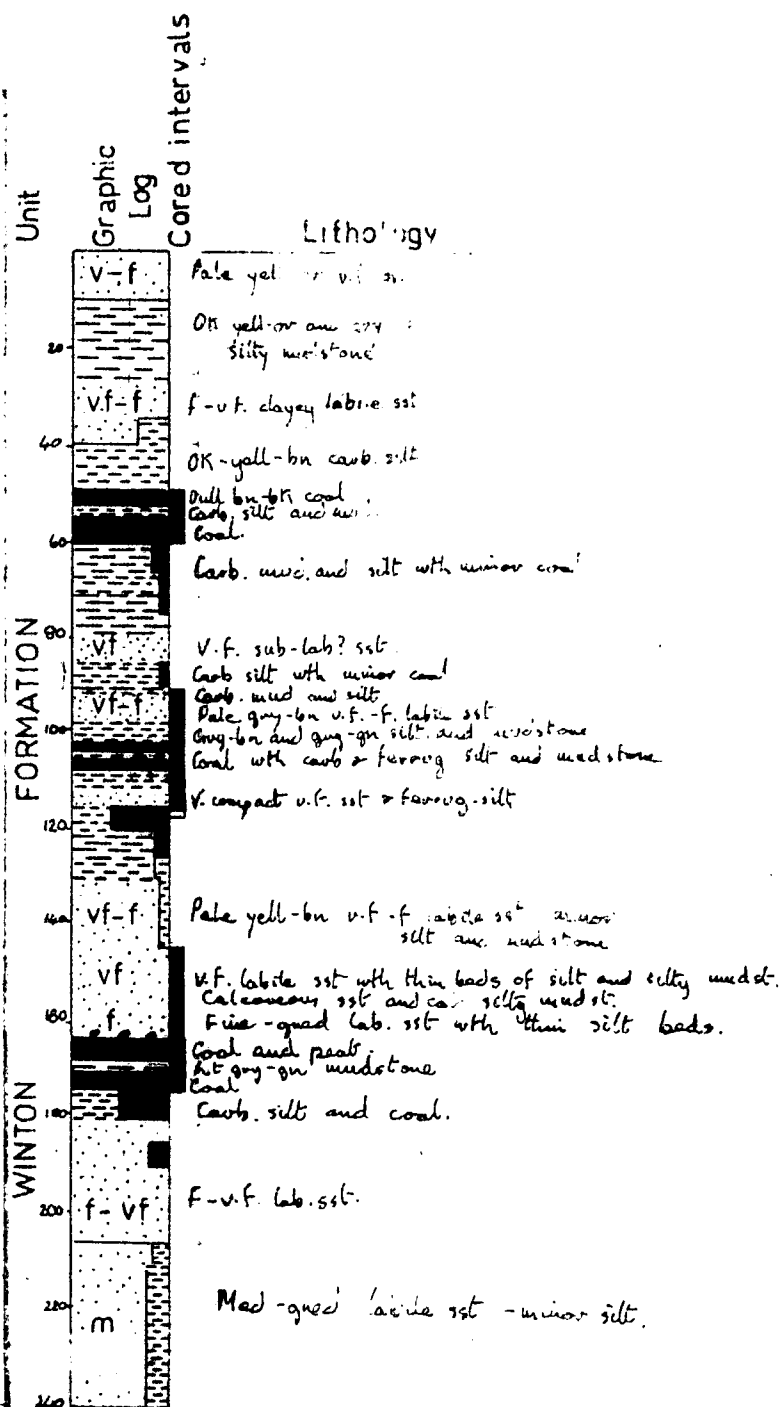 Unit
Graphic
Log
Cored intervals
Lithology
FORMATION
WINTON
20
40
60
80
100
120
140
160
180
200
220
240
v-f
vf-f
vf
vf-f
vf-f
vf
f
f-vf
m
Pale
silty mudstone
f-v.f. clayey labile sst
OK-yell-bn carb. silt
Dull bn-bk coal
Carb. silt and
Coal.
Carb. mud. and silt wth minor coal
V.f. sub-lab? sst
Carb silt wth minor coal
Carb. mud and silt
Pale gny-bn v.f.-f. labile sst
Gny-bn and gny-gn silt. and mudstone
Coal wth carb & ferrug silt and mudstone
V. compact v.f. sst & ferrug-silt
Pale yell-bn v.f-f labile sst minor
silt and mudstone
v.f. labile sst wth thin beds of silt and silty mudst.
Calcareous sst and silty mudst.
Fine-gned lab. sst wth thin silt beds.
Coal and peat.
Lt gny-gn mudstone
Coal
Carb. silt and coal.
F-v.f. lab. sst.
Med-gned labile sst - minor silt.